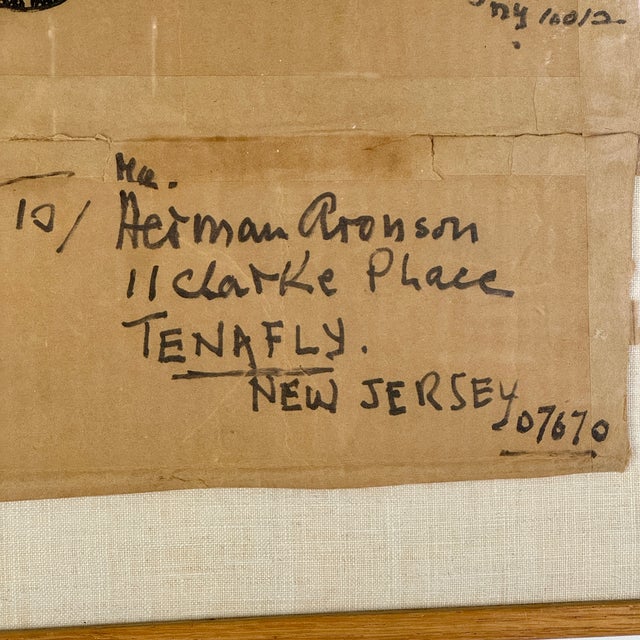 NY 10012
Mr.
TO/ Herman Aronson
11 Clarke Place
TENAFLY.
NEW JERSEY
07670